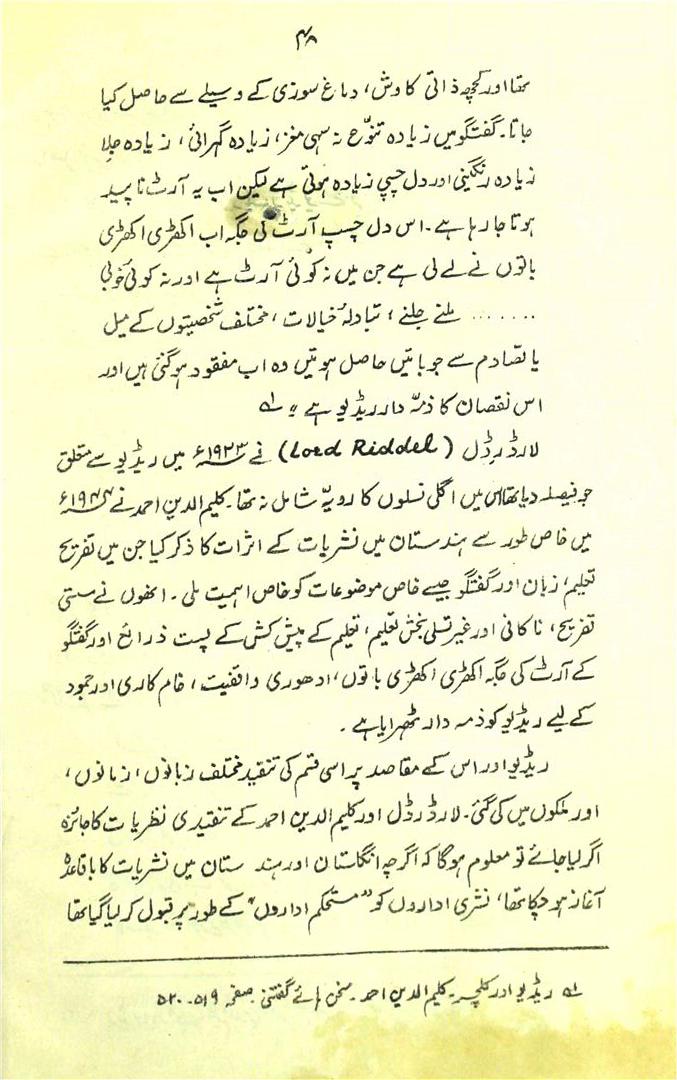 ۴۸
تھا اور کچھ ذاتی کاوش، دماغ سوزی کے وسیلے سے حاصل کیا
جاتا۔ گفتگو میں زیادہ تنوّع نہ سہی مغز، زیادہ گہرائی، زیادہ جلا
زیادہ رنگینی اور دل چسپی زیادہ ہوتی ہے لیکن اب یہ آرٹ ناپید
ہوتا جا رہا ہے۔ اس دل چسپ آرٹ کی جگہ اب اکھڑی اکھڑی
باتوں نے لے لی ہے جن میں نہ کوئی آرٹ ہے اور نہ کوئی خوبی
....... ملنے جلنے، تبادلۂ خیالات، مختلف شخصیتوں کے میل
یا تصادم سے جو باتیں حاصل ہوتیں وہ اب مفقود ہوگئی ہیں اور
اس نقصان کا ذمّہ دار ریڈیو ہے " لہ
لارڈ رِڈل (Lord Riddel) نے ۱۹۲۳ء میں ریڈیو سے متعلق
جو فیصلہ دیا تھا اس میں اگلی نسلوں کا رویہّ شامل نہ تھا۔ کلیم الدین احمد نے ۱۹۴۴ء
میں خاص طور سے ہندستان میں نشریات کے اثرات کا ذکر کیا جن میں تفریح
تعلیم، زبان اور گفتگو جیسے خاص موضوعات کو خاص اہمیت ملی۔ انھوں نے سستی
تفریح، ناکافی اور غیر تسلی بخش تعلیم، تعلیم کے پیش کش کے پست ذرائع اور گفتگو
کے آرٹ کی جگہ اکھڑی اکھڑی باتوں، ادھوری واقفیت، خام کاری اور جمود
کے لیے ریڈیو کو ذمہ دار ٹھہرایا ہے۔
ریڈیو اور اس کے مقاصد پر اسی قسم کی تنقید مختلف زبانوں، زمانوں،
اور ملکوں میں کی گئی۔ لارڈ رڈل اور کلیم الدین احمد کے تنقیدی نظریات کا جائزہ
اگر لیا جائے تو معلوم ہوگا کہ اگرچہ انگلستان اور ہندستان میں نشریات کا باقاعدہ
آغاز ہو چکا تھا، نشری اداروں کو "مستحکم اداروں" کے طور پر قبول کر لیا گیا تھا
لہ ریڈیو اور کلچر۔ کلیم الدین احمد۔ سخن ہائے گفتنی صفحہ ۵۱۹۔ ۵۲۰